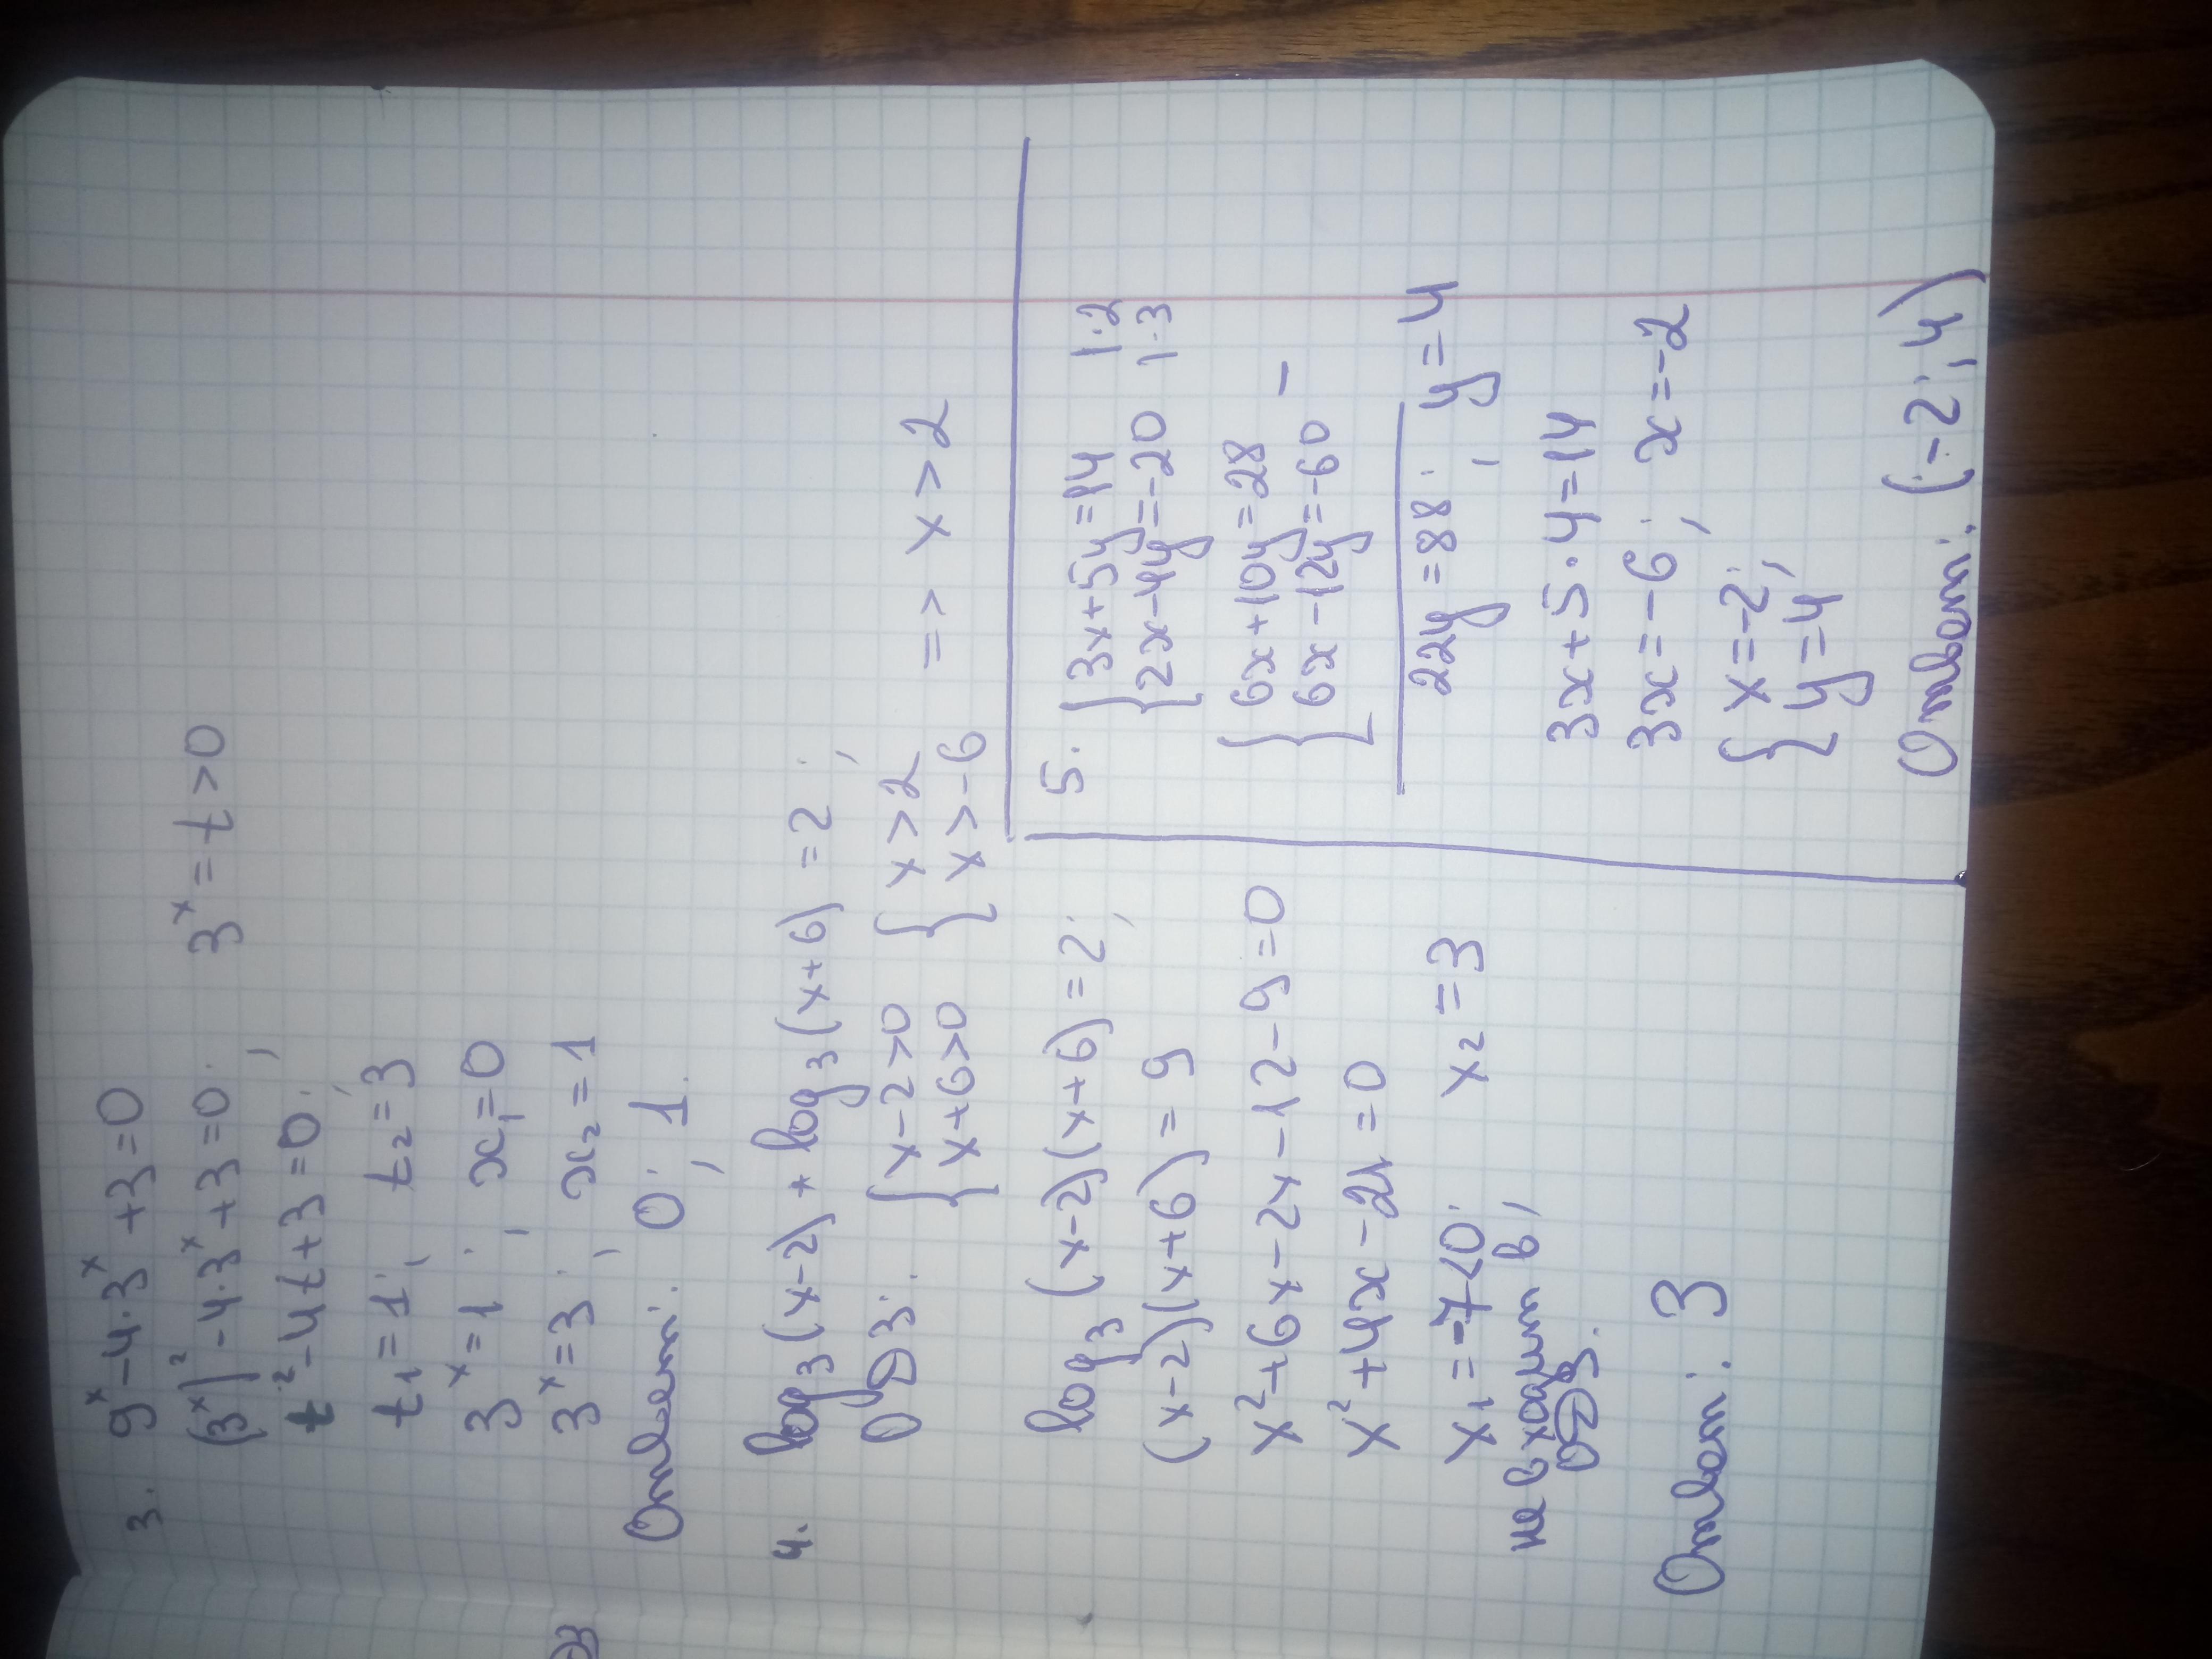 3. 9ˣ-4·3ˣ+3=0
(3ˣ)²-4·3ˣ+3=0; 3ˣ=t>0
t²-4t+3=0;
t₁=1; t₂=3
3ˣ=1; x₁=0
3ˣ=3; x₂=1
Ответ: 0; 1.
4. log₃(x-2)+log₃(x+6)=2;
ОДЗ: {x-2>0 {x>2
{x+6>0 {x>-6 => x>2
log₃(x-2)(x+6)=2;
(x-2)(x+6)=9
x²+6x-2x-12-9=0
x²+4x-21=0
x₁=-7<0; x₂=3
не входит в
ОДЗ.
Ответ: 3
5. {3x+5y=14 |·2
{2x-4y=-20 |·3
{6x+10y=28 -
{6x-12y=-60
22y=88; y=4
3x+5·4=14
3x=-6; x=-2
{x=-2;
{y=4
Ответ: (-2; 4)